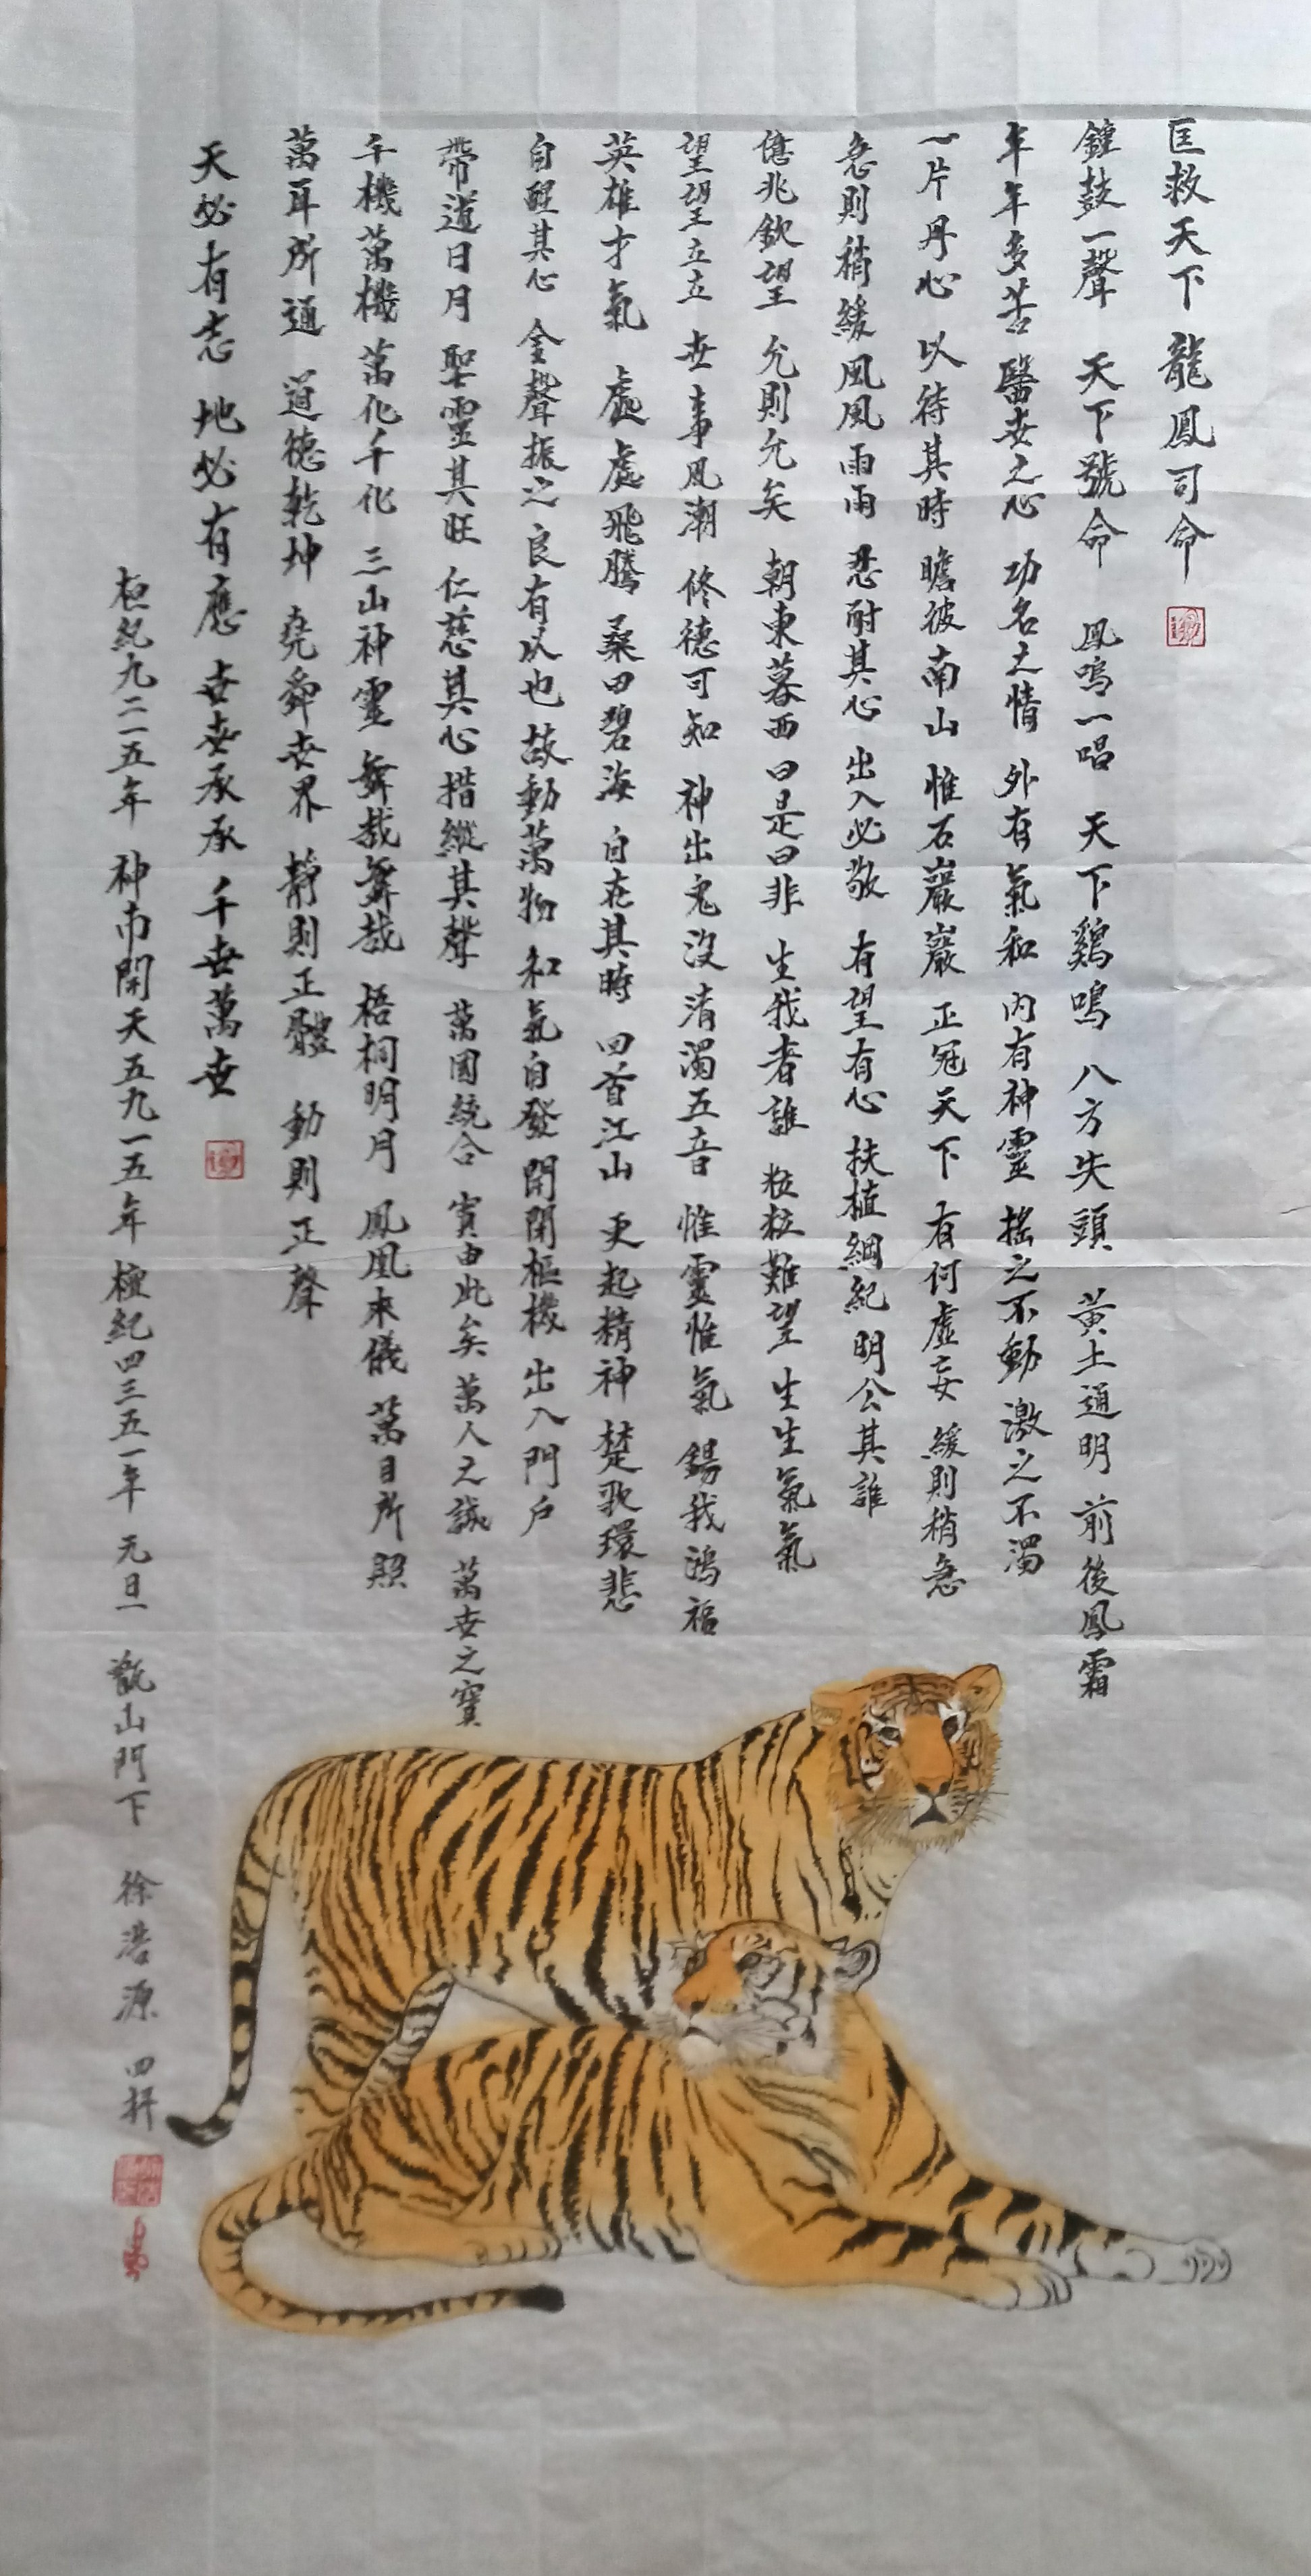 匡救天下 龍鳳司命
鐘鼓一聲 天下號命 鳳鳴一唱 天下鷄鳴 八方失頭 黃土通明 前後鳳霜
年年多苦 醫世之心 功名之情 外有氣和 內有神靈 搖之不動 激之不濁
一片丹心 以待其時 瞻彼南山 惟石巖巖 正冠天下 有何虛妄 緩則稍急
急則稍緩 風風雨雨 忍耐其心 出入必敬 有望有心 扶植綱紀 明公其誰
億兆欽望 允則允矣 朝東暮西 曰是曰非 生我者誰 粒粒難望 生生氣氣
望望立立 世事風潮 修德可知 神出鬼沒 清濁五音 惟靈惟氣 錫我鴻福
英雄才氣 處處飛騰 桑田碧海 自在其時 回首江山 更起精神 楚歌環悲
自醒其心 金聲振之 良有以也 故動萬物 和氣自發 開閉樞機 出入門戶
帶道日月 聖靈其旺 仁慈其心 措縱其聲 萬國統合 實由此矣 萬人之誠 萬世之寶
千機萬機 萬化千化 三山神靈 舞哉舞哉 梧桐明月 鳳凰來儀 萬目所照
萬耳所通 道德乾坤 堯舜世界 靜則正體 動則正聲
天必有志 地必有應 世世承承 千世萬世
桓紀九二一五年 神市開天五九一五年 檀紀四三五一年 元旦 甑山門下 徐浩源 四拜